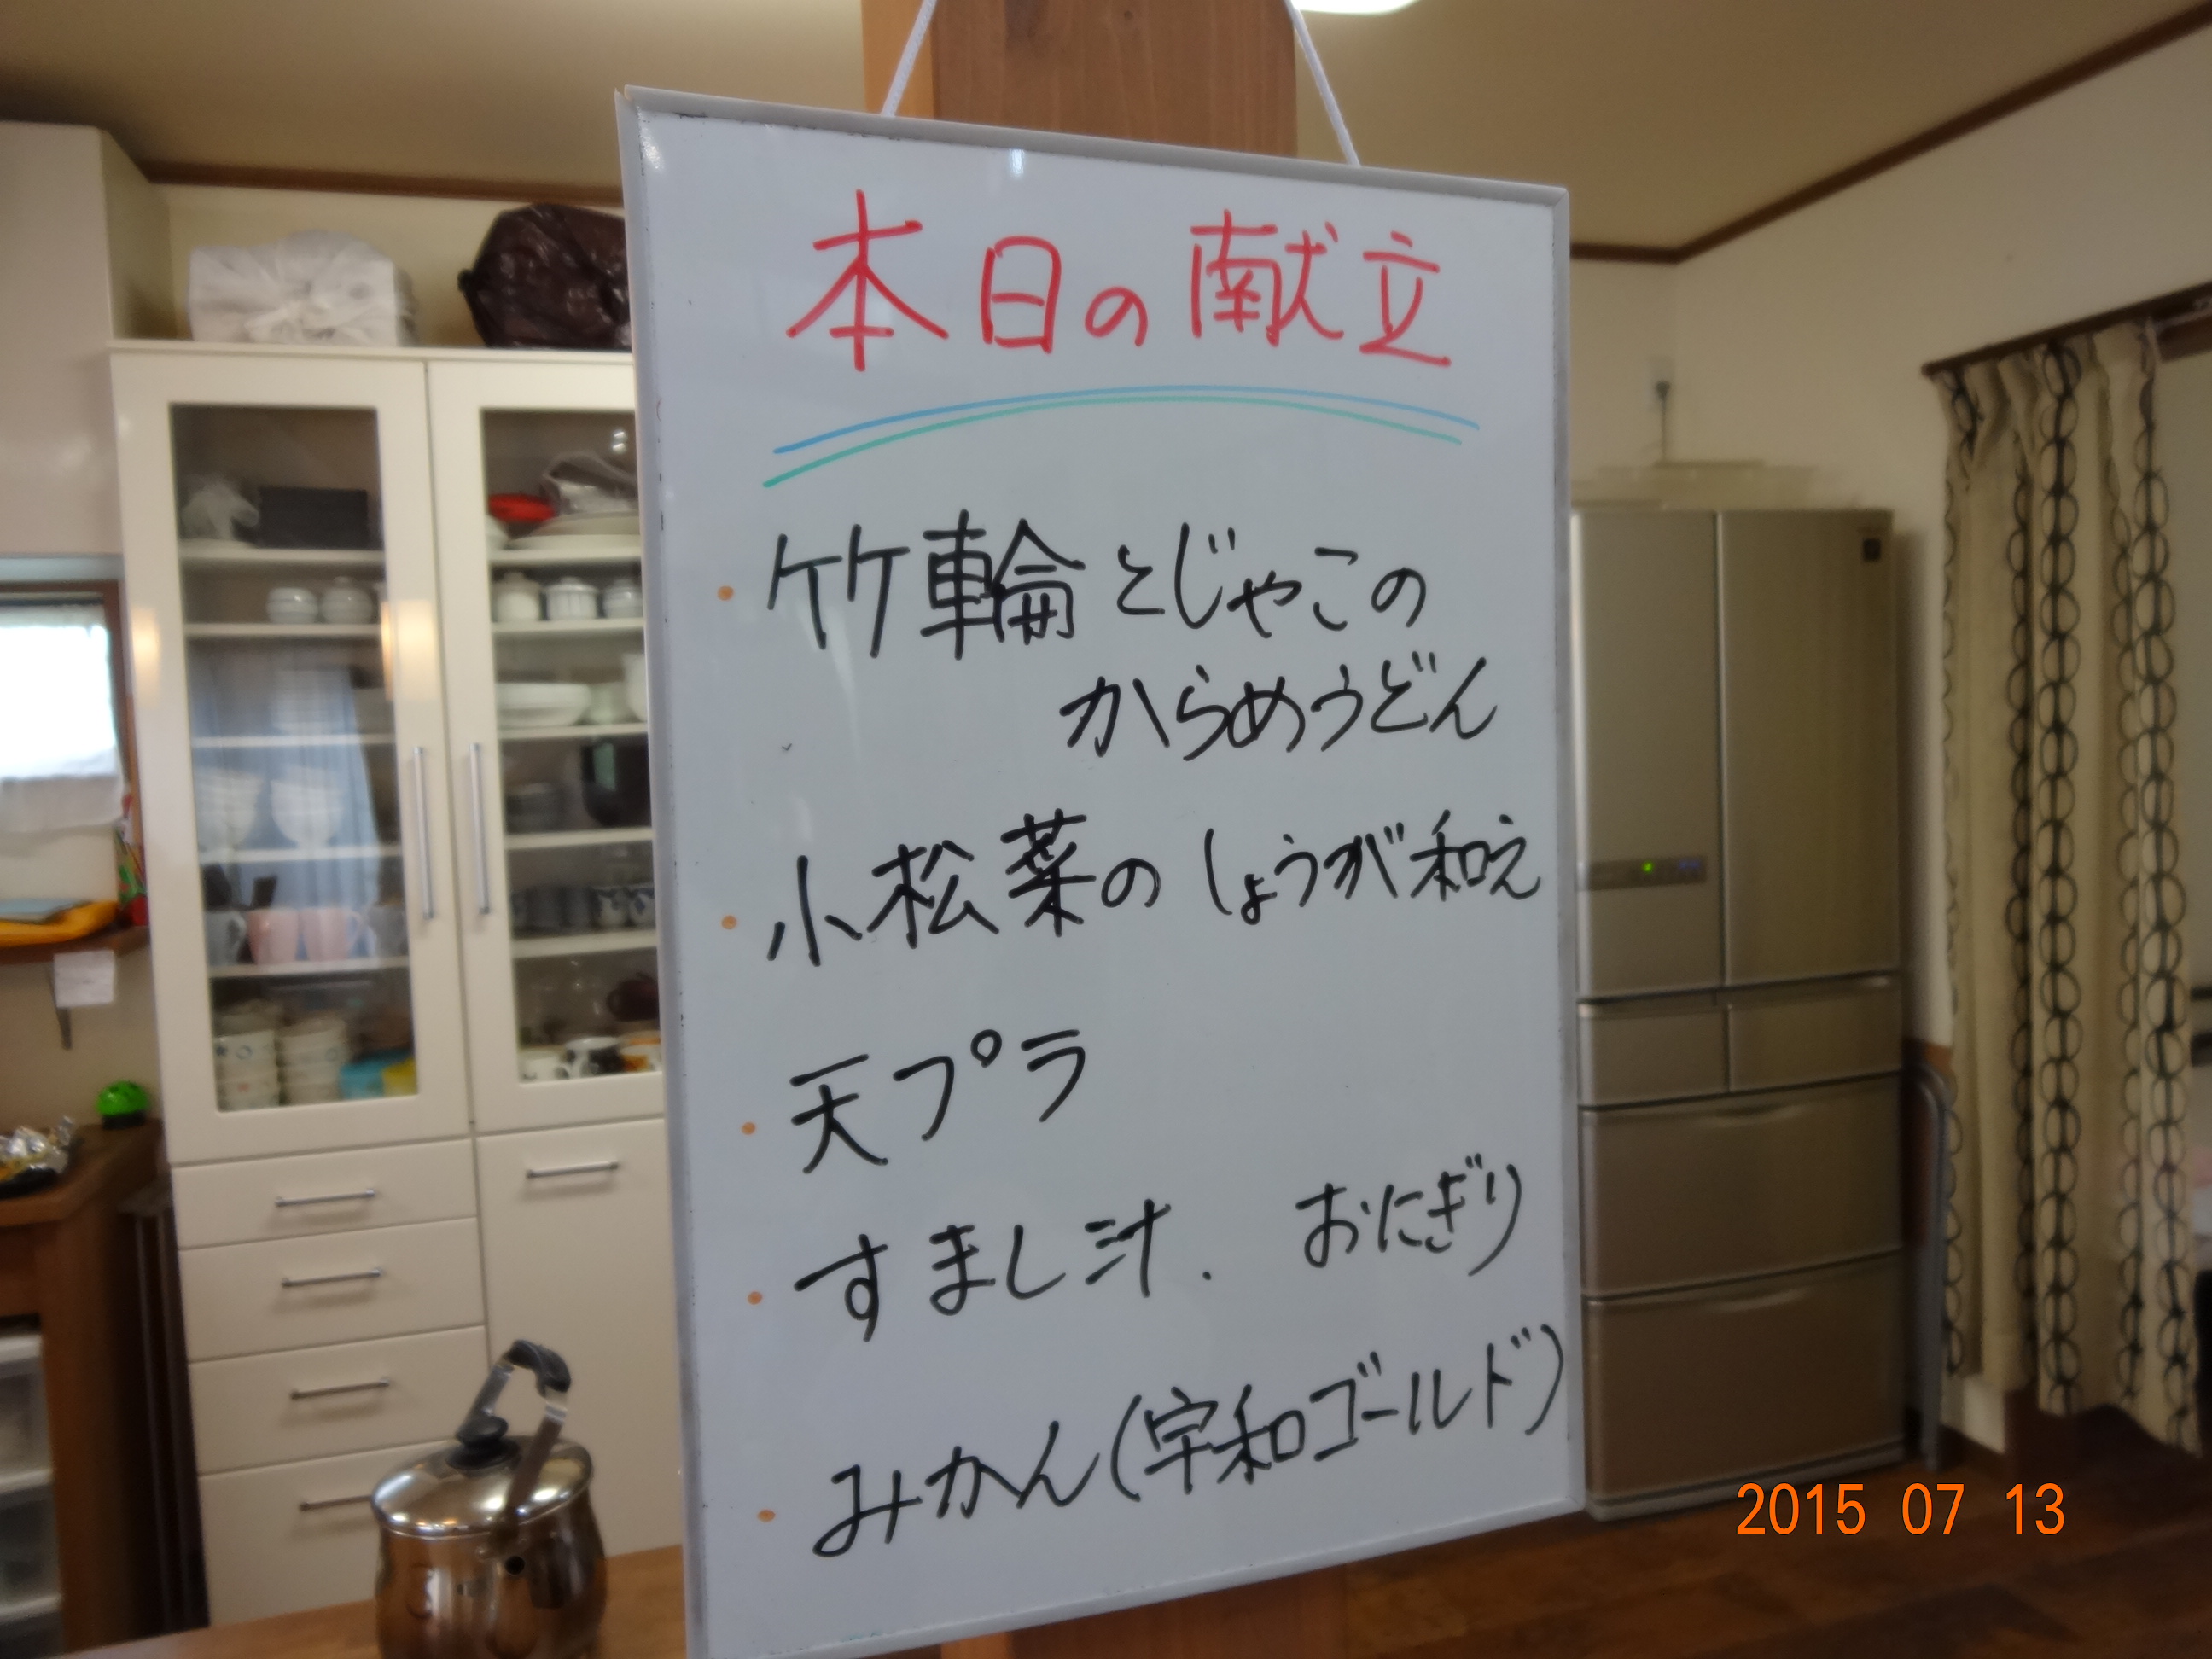 本日の献立
・竹輪とじゃこの
からめうどん
・小松菜のしょうが和え
・天プラ
・すまし汁. おにぎり
・みかん(宇和ゴールド)
2015 07 13